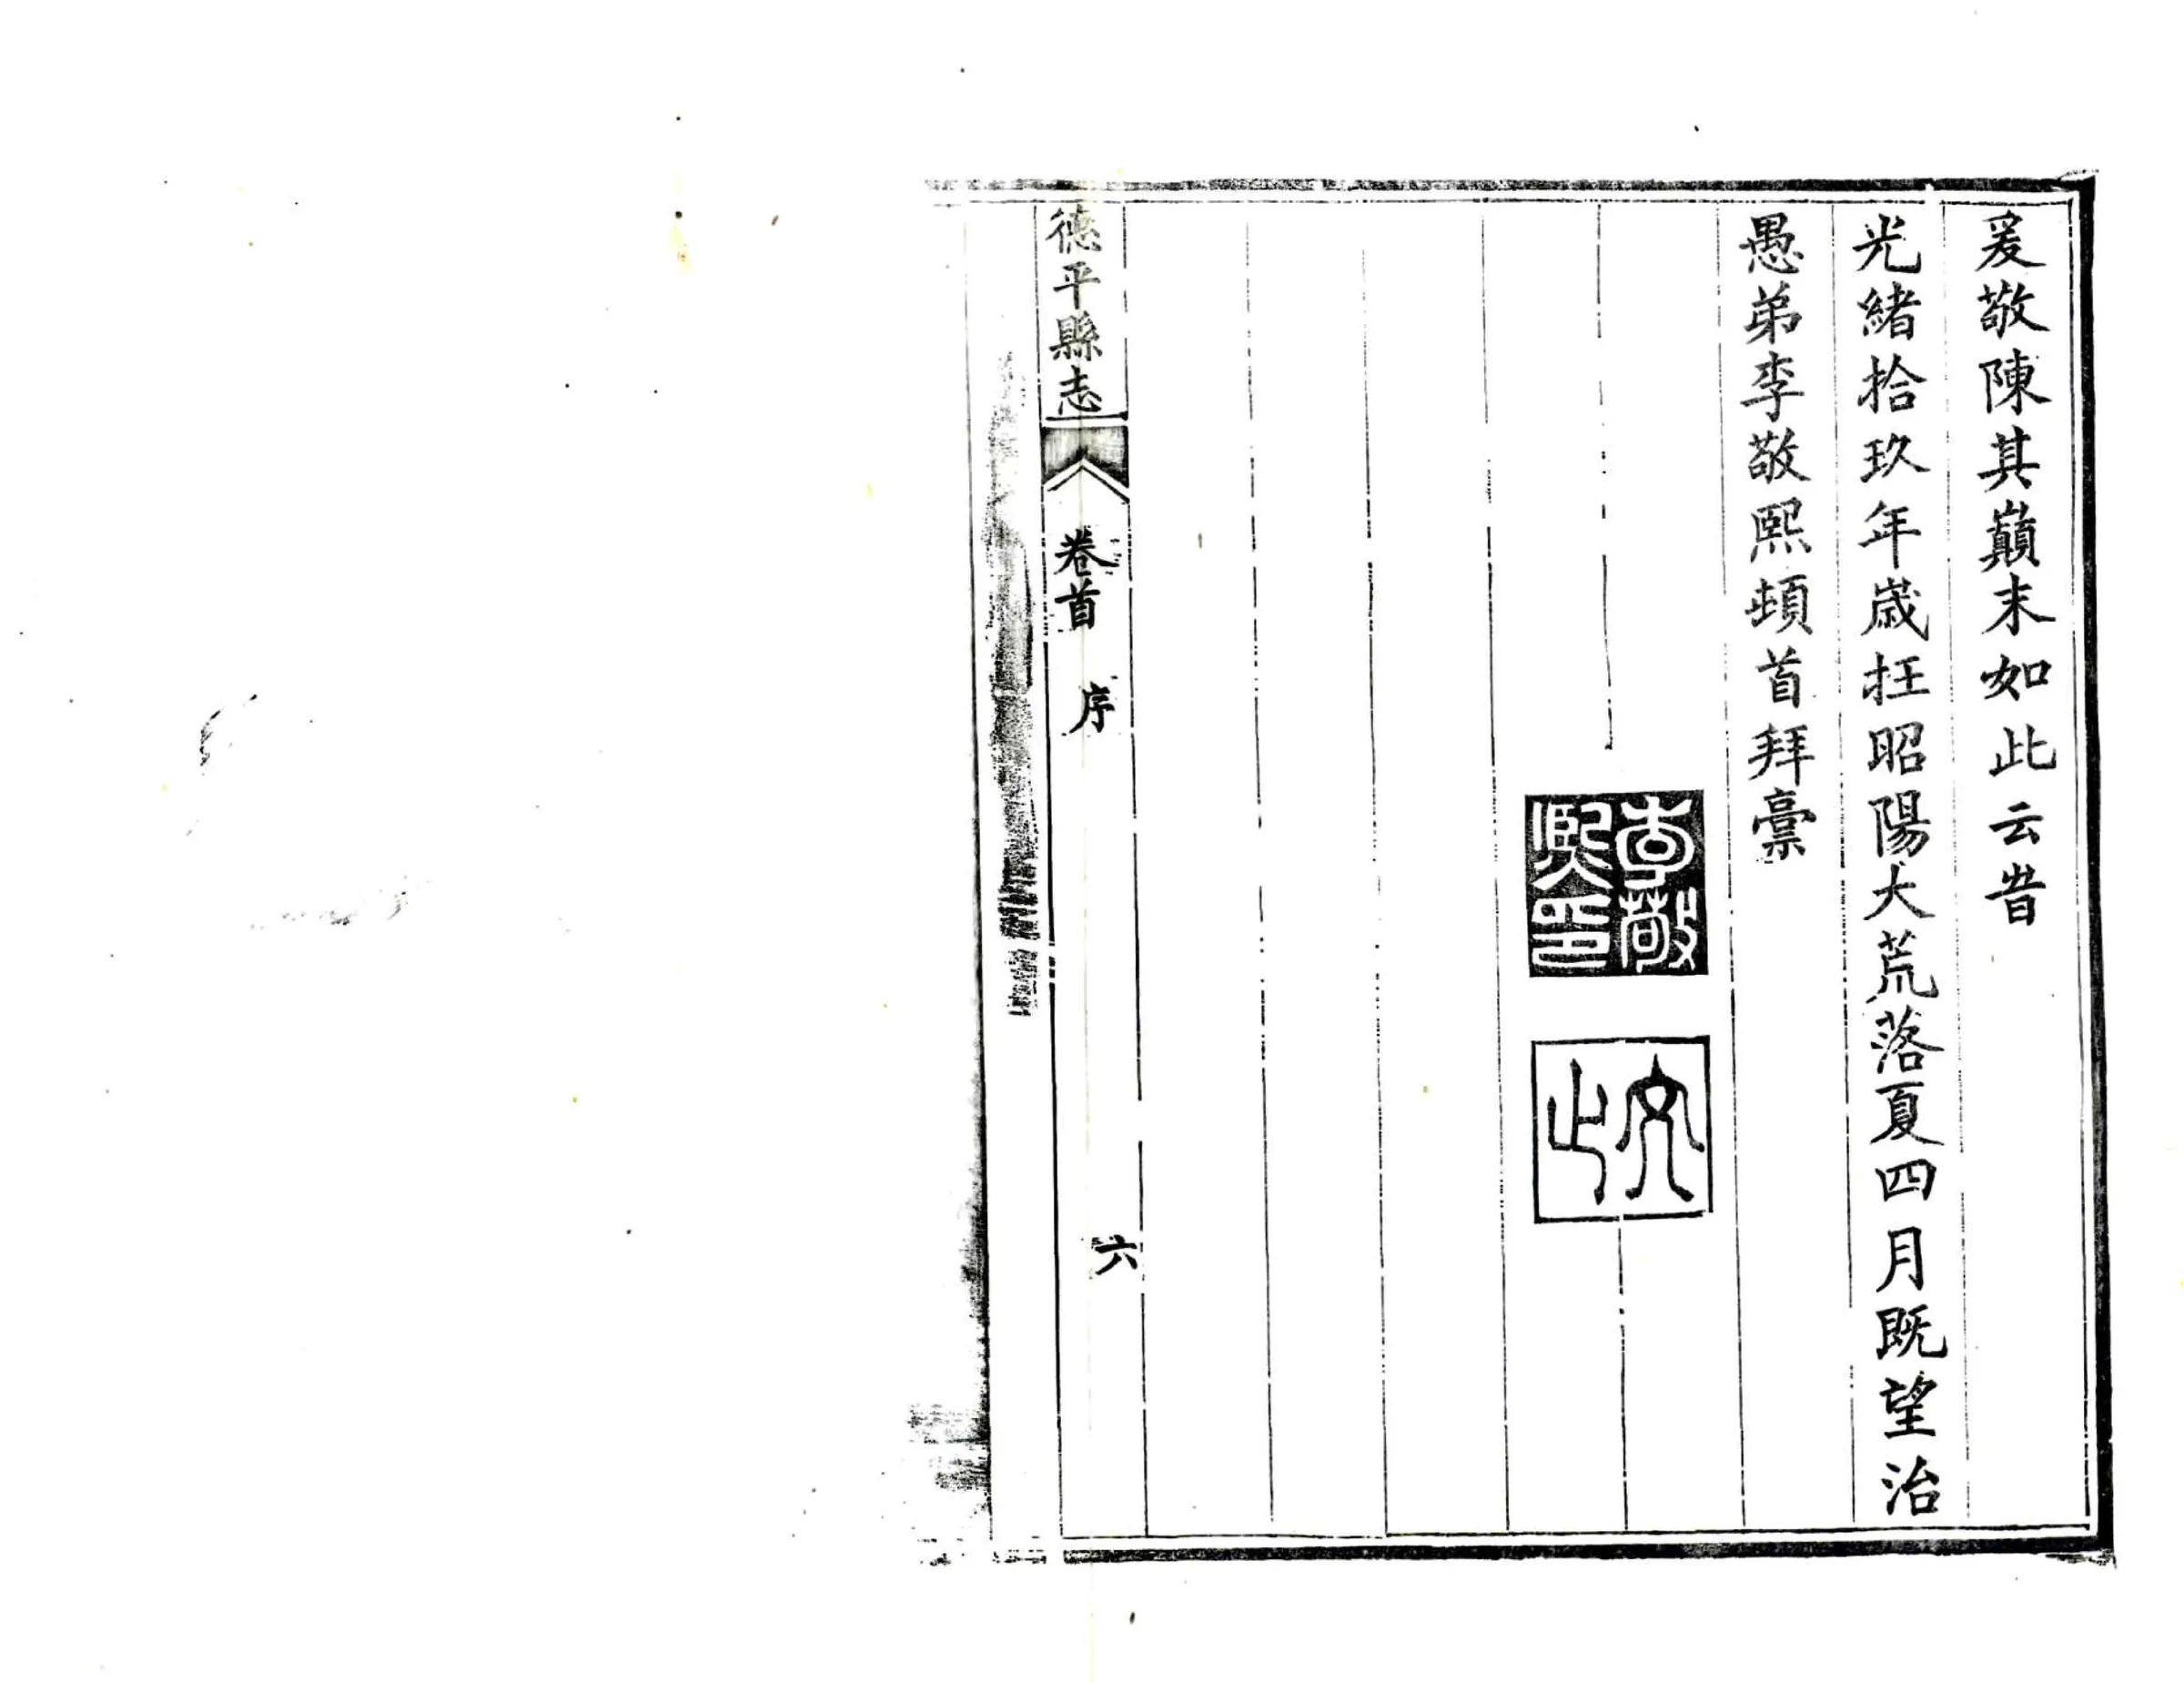 爰敬陳其巔末如此云旹
光緒拾玖年歲扗昭陽大荒落夏四月既望治
愚弟李敬熙頓首拜稾
李敬
熙印
德平縣志
卷首
序
六